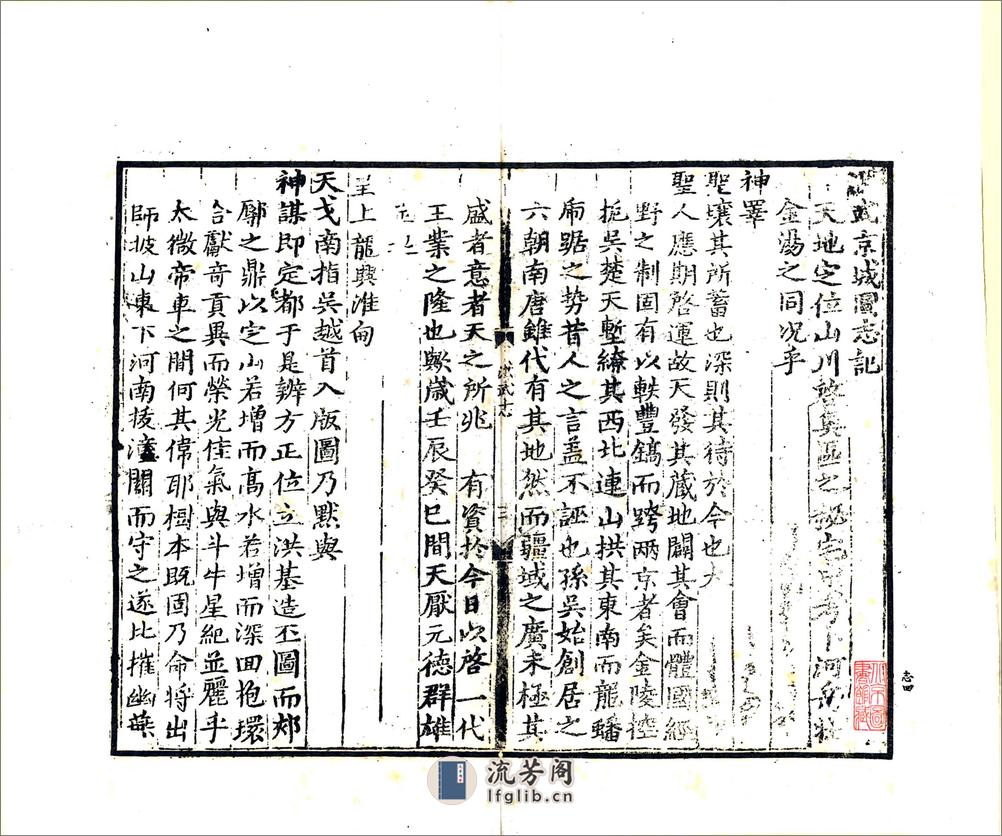 武京城圖志記
天地定位山川啓奠區之
金湯之同况乎
神睪
聖壤其所蓄也深則其待於今也大
聖人應期啓運故天發其蔵地闢其會而體國經
野之制固有以軼豐鎬而跨兩京者矣金陵控
扼吳楚天塹繚其西北連山拱其東南而龍蟠
虎踞之勢昔人之言盖不誣也孫吳始創居之
六朝南唐雖代有其地然而疆域之廣未極其
盛者意者天之所兆 有資扵今日以啓一代
王業之隆也歟歲壬辰癸巳間天厭元德群雄
並起
皇上龍興淮甸
天戈南指吳越首入版圖乃默與
神謀即定都于是辨方正位立洪基造丕圖而郟
鄏之鼎以定山若增而髙水若增而深回抱環
合獻竒貢異而榮光佳氣與斗牛星紀並麗乎
太微帝車之間何其偉耶根本既固乃命将出
師披山東下河南拔潼關而守之遂比摧幽燕
洪武志
三
志四
流芳阁
lfglib.cn